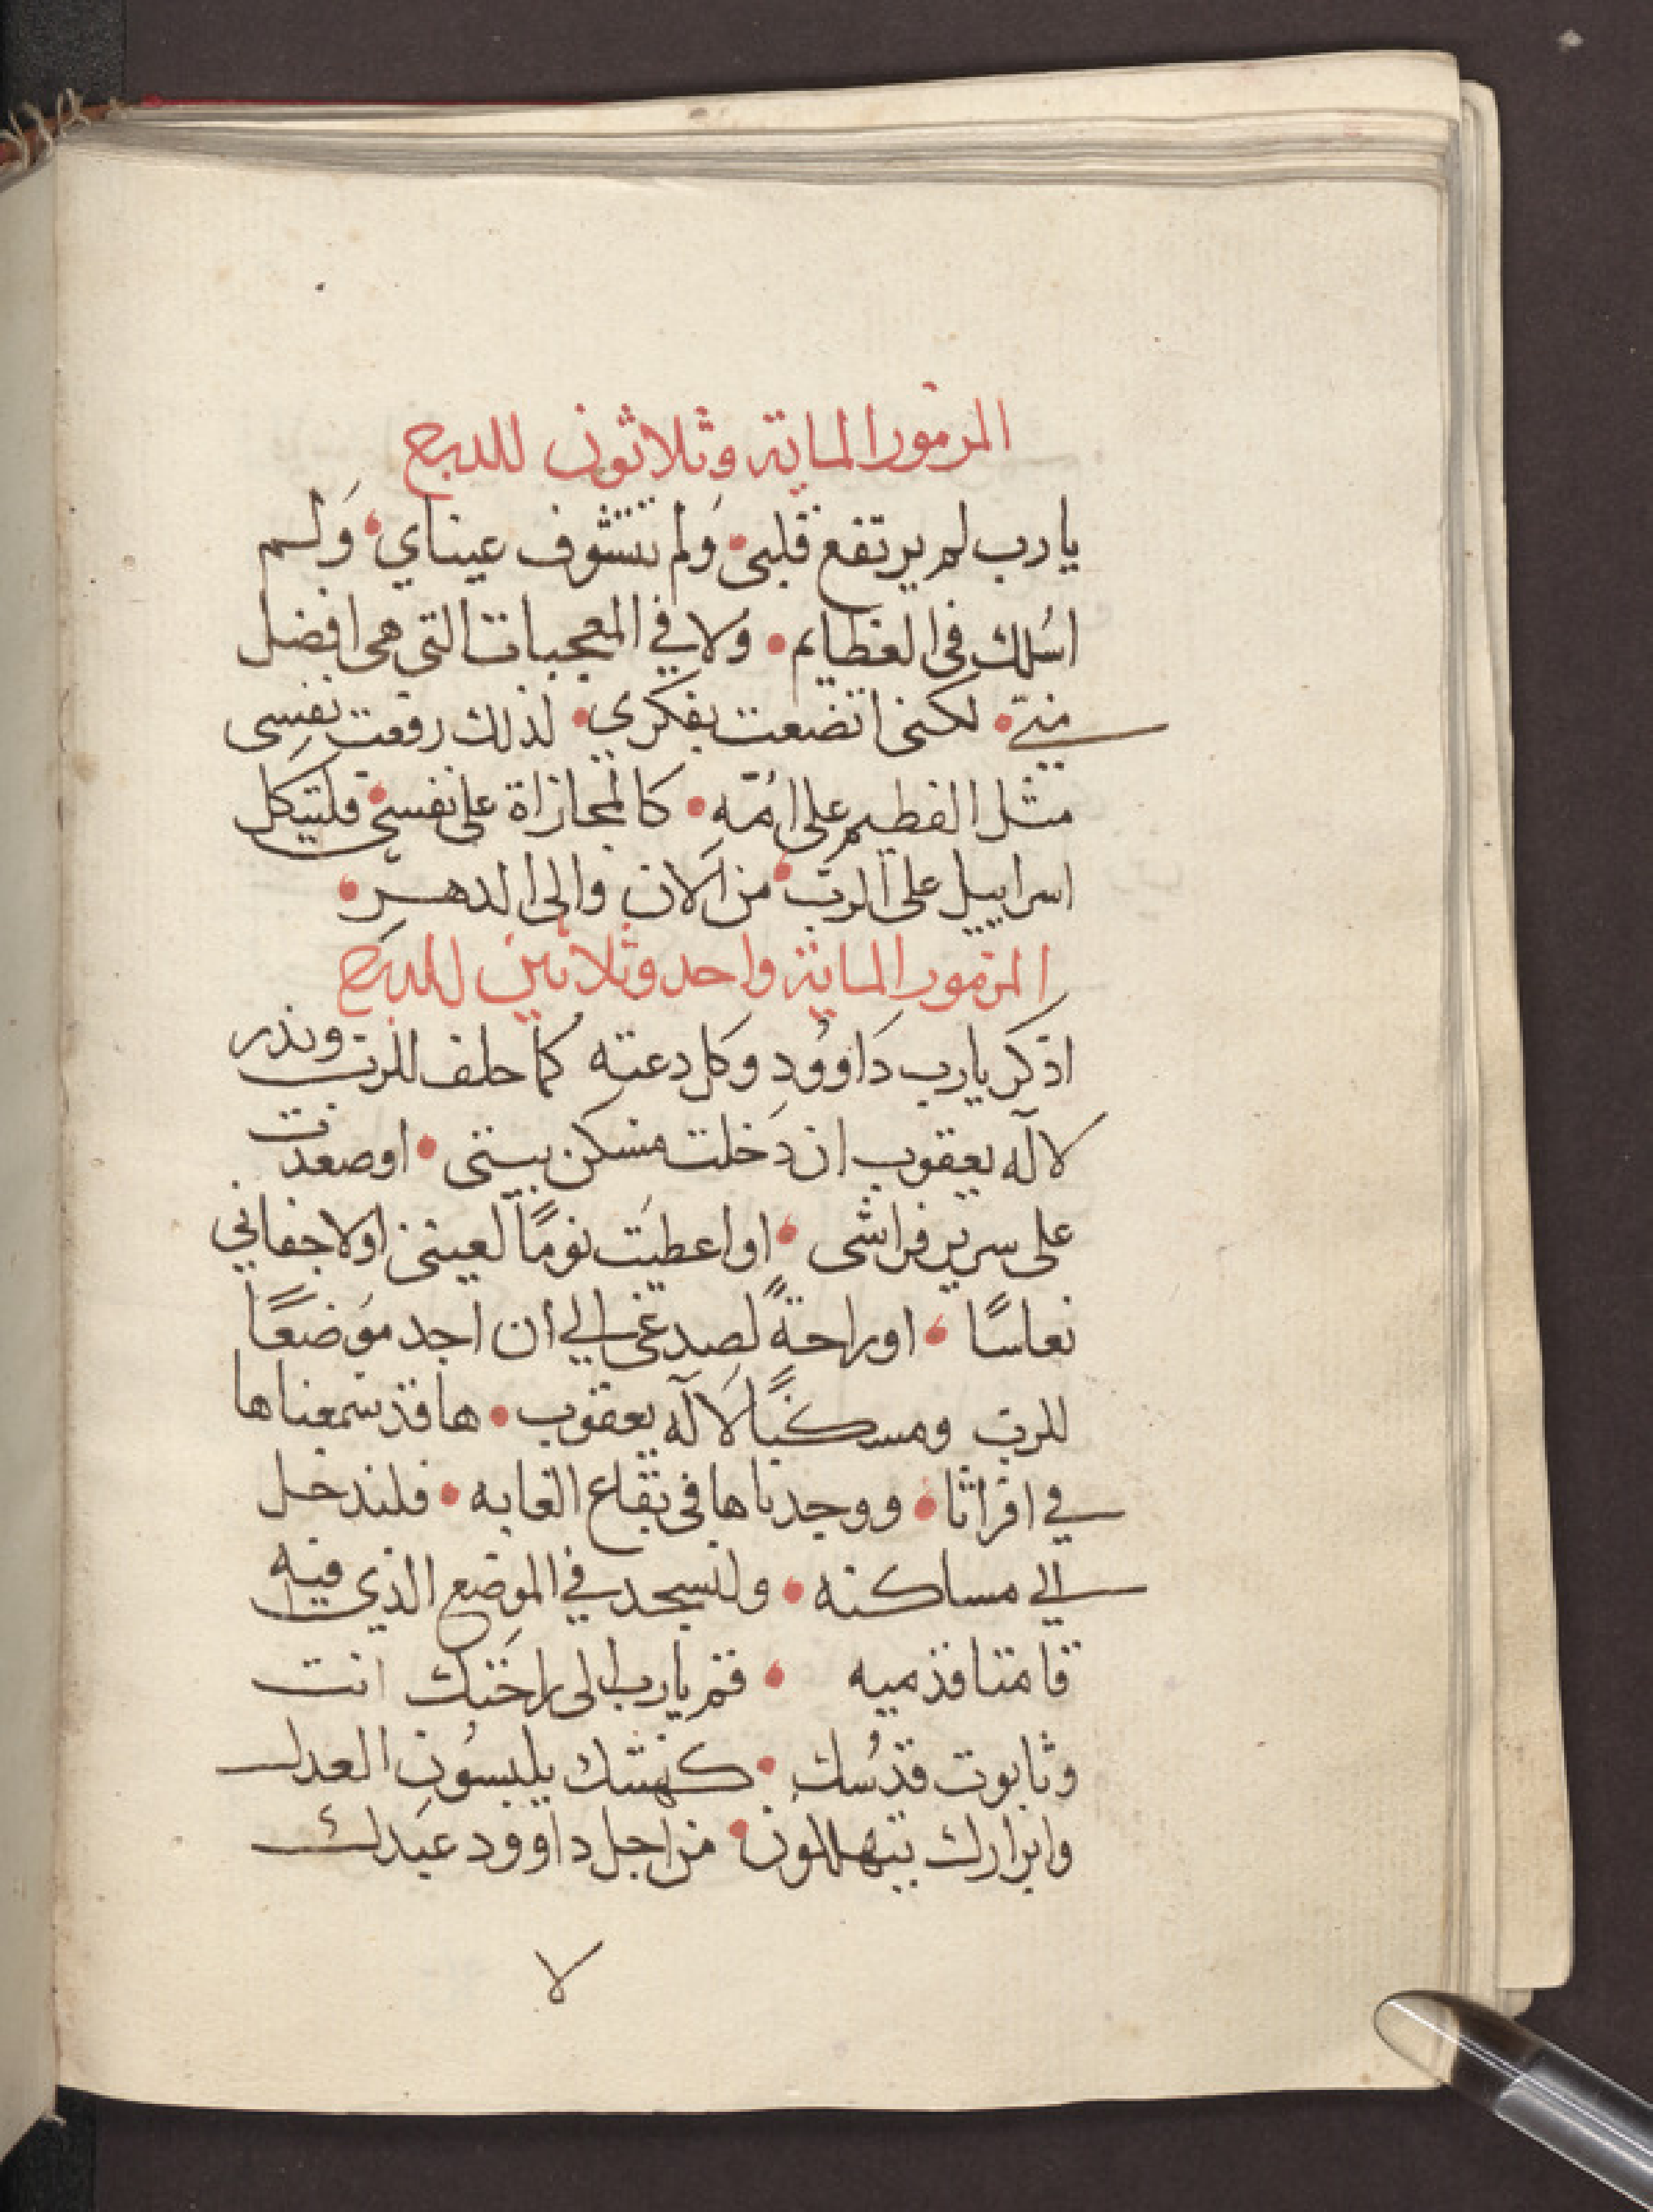 المزمور الماية وثلاثون للدرج
يا رب لم يرتفع قلبي • وَلم تتشوف عيناي • وَلم
اسُلك في العظايم • وَلا في المعجبات التي هي افضل
منيّ • لكنني اتضعت بفكري • لذلك رفعت نفسِي
مثل الفطيم على امُّه • كالمجازاة على نفسي • فليتكل
اسراييل على الربّ • من الان والى الدهر •
المزمور الماية واحد وثلاثين للدرج
اذكر يا رب دَاوُود وَكل دعته كما حلف للرب ونذر
لاله يعقوب ان دَخلت مسكن بيتي • او صعدت
على سرير فراشي • او اعطيَت نومًا لعيني او لاجفاني
نعاسًا • او راحةً لصدغي الي ان اجد موَضعًا
للرب ومسكنًا لاله يعقوب • ها قد سمعناها
في افراثا • ووجدناها في بقاع الغابه • فلندخل
الي مساكنه • ولنسجد في الموضع الذي فيه
قامتا قدميه • قم يا رب الى راحَتك انت
وتابوت قدُسك • كهنتك يلبسُون العدل
وابرارك يتهللون • من اجل داوود عبَدك
لا